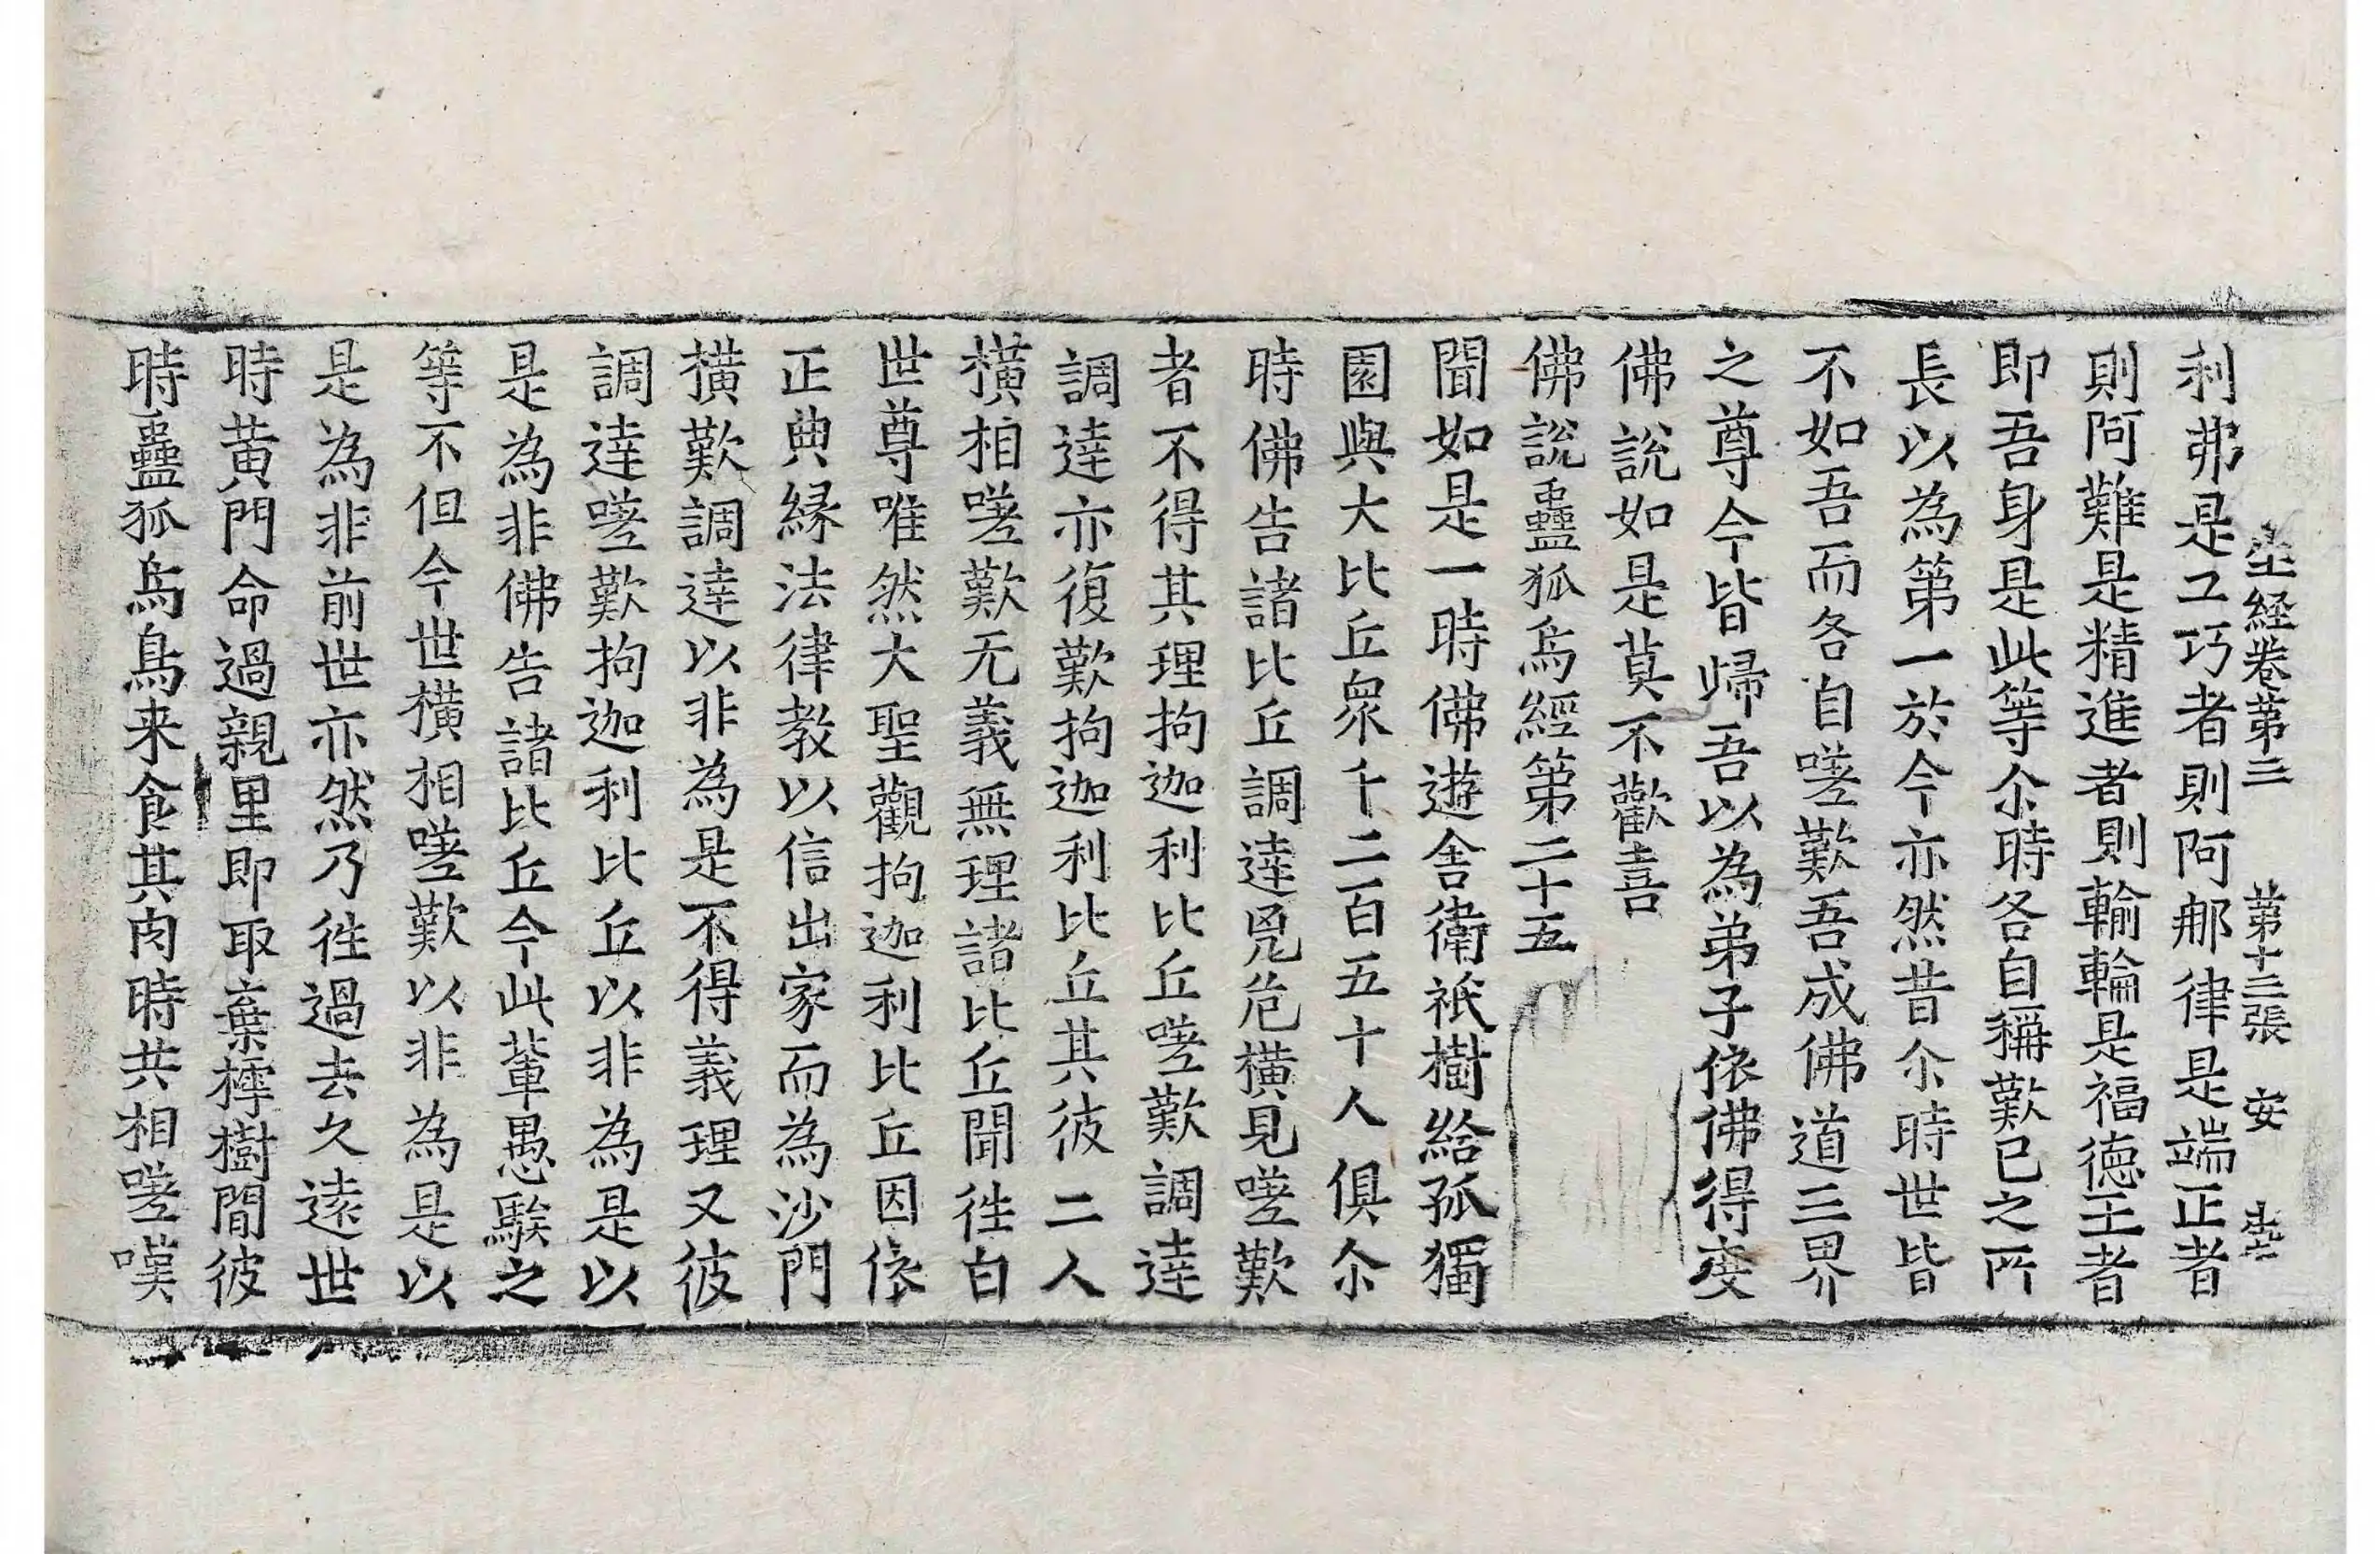 生經卷第三 第十三張 安
利弗是工巧者則阿那律是端正者
則阿難是精進者則輸輪是福德王者
即吾身是此等尒時各自稱歎已之所
長以為第一於今亦然昔尒時世皆
不如吾而各自嗟歎吾成佛道三界
之尊今皆歸吾以為弟子依佛得度
佛說如是莫不歡喜
佛說蠱狐烏經第二十五
聞如是一時佛遊舍衛祇樹給孤獨
園與大比丘眾千二百五十人俱尒
時佛告諸比丘調達兇危橫見嗟歎
者不得其理拘迦利比丘嗟歎調達
調達亦復歎拘迦利比丘其彼二人
橫相嗟歎无義無理諸比丘聞往白
世尊唯然大聖觀拘迦利比丘因依
正典緣法律教以信出家而為沙門
橫歎調達以非為是不得義理又彼
調達嗟歎拘迦利比丘以非為是以
是為非佛告諸比丘今此輩愚騃之
等不但今世橫相嗟歎以非為是以
是為非前世亦然乃往過去久遠世
時黃門命過親里即取棄樗樹間彼
時蠱狐烏鳥来食其肉時共相嗟嘆